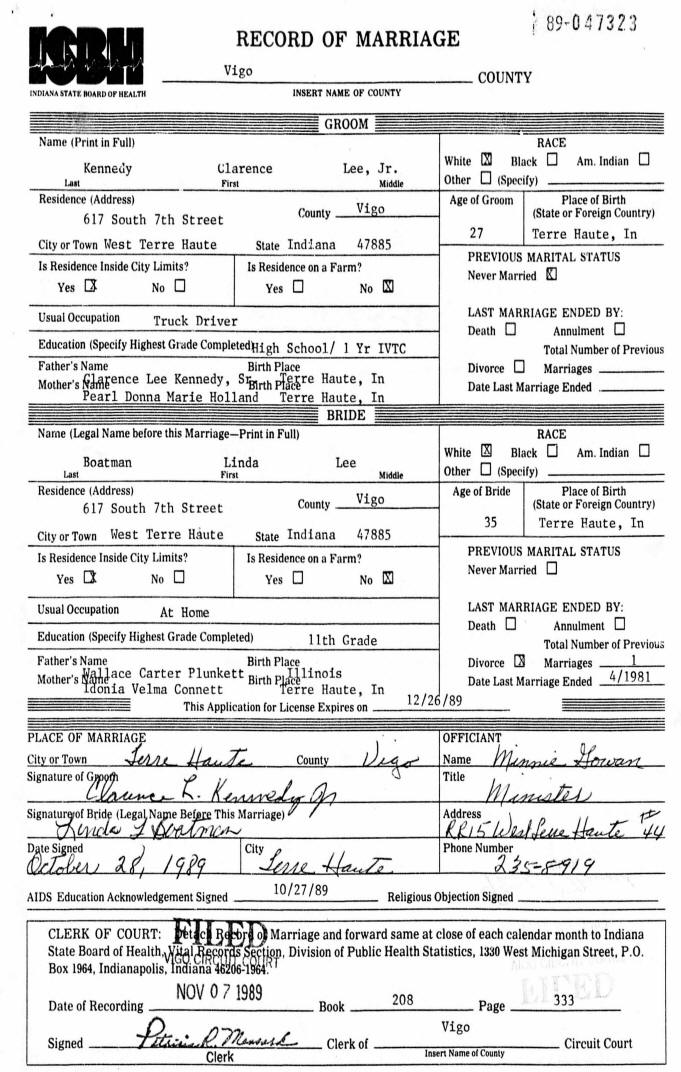 89-047323
ISBH
INDIANA STATE BOARD OF HEALTH
RECORD OF MARRIAGE
Vigo COUNTY
INSERT NAME OF COUNTY
GROOM
Name (Print in Full)
Kennedy Clarence Lee, Jr.
Last First Middle
RACE
White ☒ Black ☐ Am. Indian ☐
Other ☐ (Specify)
Residence (Address)
617 South 7th Street County Vigo
City or Town West Terre Haute State Indiana 47885
Age of Groom
27
Place of Birth
(State or Foreign Country)
Terre Haute, In
Is Residence Inside City Limits?
Yes ☒ No ☐
Is Residence on a Farm?
Yes ☐ No ☒
PREVIOUS MARITAL STATUS
Never Married ☒
Usual Occupation Truck Driver
Education (Specify Highest Grade Completed) High School/ 1 Yr IVTC
LAST MARRIAGE ENDED BY:
Death ☐ Annulment ☐
Total Number of Previous
Divorce ☐ Marriages
Date Last Marriage Ended
Father's Name Birth Place
Clarence Lee Kennedy, Sr. Terre Haute, In
Mother's Name Birth Place
Pearl Donna Marie Holland Terre Haute, In
BRIDE
Name (Legal Name before this Marriage—Print in Full)
Boatman Linda Lee
Last First Middle
RACE
White ☒ Black ☐ Am. Indian ☐
Other ☐ (Specify)
Residence (Address)
617 South 7th Street County Vigo
City or Town West Terre Haute State Indiana 47885
Age of Bride
35
Place of Birth
(State or Foreign Country)
Terre Haute, In
Is Residence Inside City Limits?
Yes ☒ No ☐
Is Residence on a Farm?
Yes ☐ No ☒
PREVIOUS MARITAL STATUS
Never Married ☐
Usual Occupation At Home
Education (Specify Highest Grade Completed) 11th Grade
LAST MARRIAGE ENDED BY:
Death ☐ Annulment ☐
Total Number of Previous
Divorce ☒ Marriages 1
Date Last Marriage Ended 4/1981
Father's Name Birth Place
Wallace Carter Plunkett Illinois
Mother's Name Birth Place
Idonia Velma Connett Terre Haute, In
This Application for License Expires on 12/26/89
PLACE OF MARRIAGE
City or Town Terre Haute County Vigo
Signature of Groom
Clarence L. Kennedy Jr
Signature of Bride (Legal Name Before This Marriage)
Linda L Boatman
Date Signed
October 28, 1989
City
Terre Haute
OFFICIANT
Name Minnie Gowan
Title
Minister
Address
RR15 West Terre Haute #44
Phone Number
235-8919
AIDS Education Acknowledgement Signed 10/27/89 Religious Objection Signed
CLERK OF COURT: Detach Record of Marriage and forward same at close of each calendar month to Indiana
State Board of Health, Vital Records Section, Division of Public Health Statistics, 1330 West Michigan Street, P.O.
Box 1964, Indianapolis, Indiana 46206-1964.
FILED
VIGO CIRCUIT COURT
FILED
NOV 07 1989
Date of Recording Book 208 Page 333
Signed Patricia R. Mansard Clerk of Vigo Circuit Court
Clerk Insert Name of County